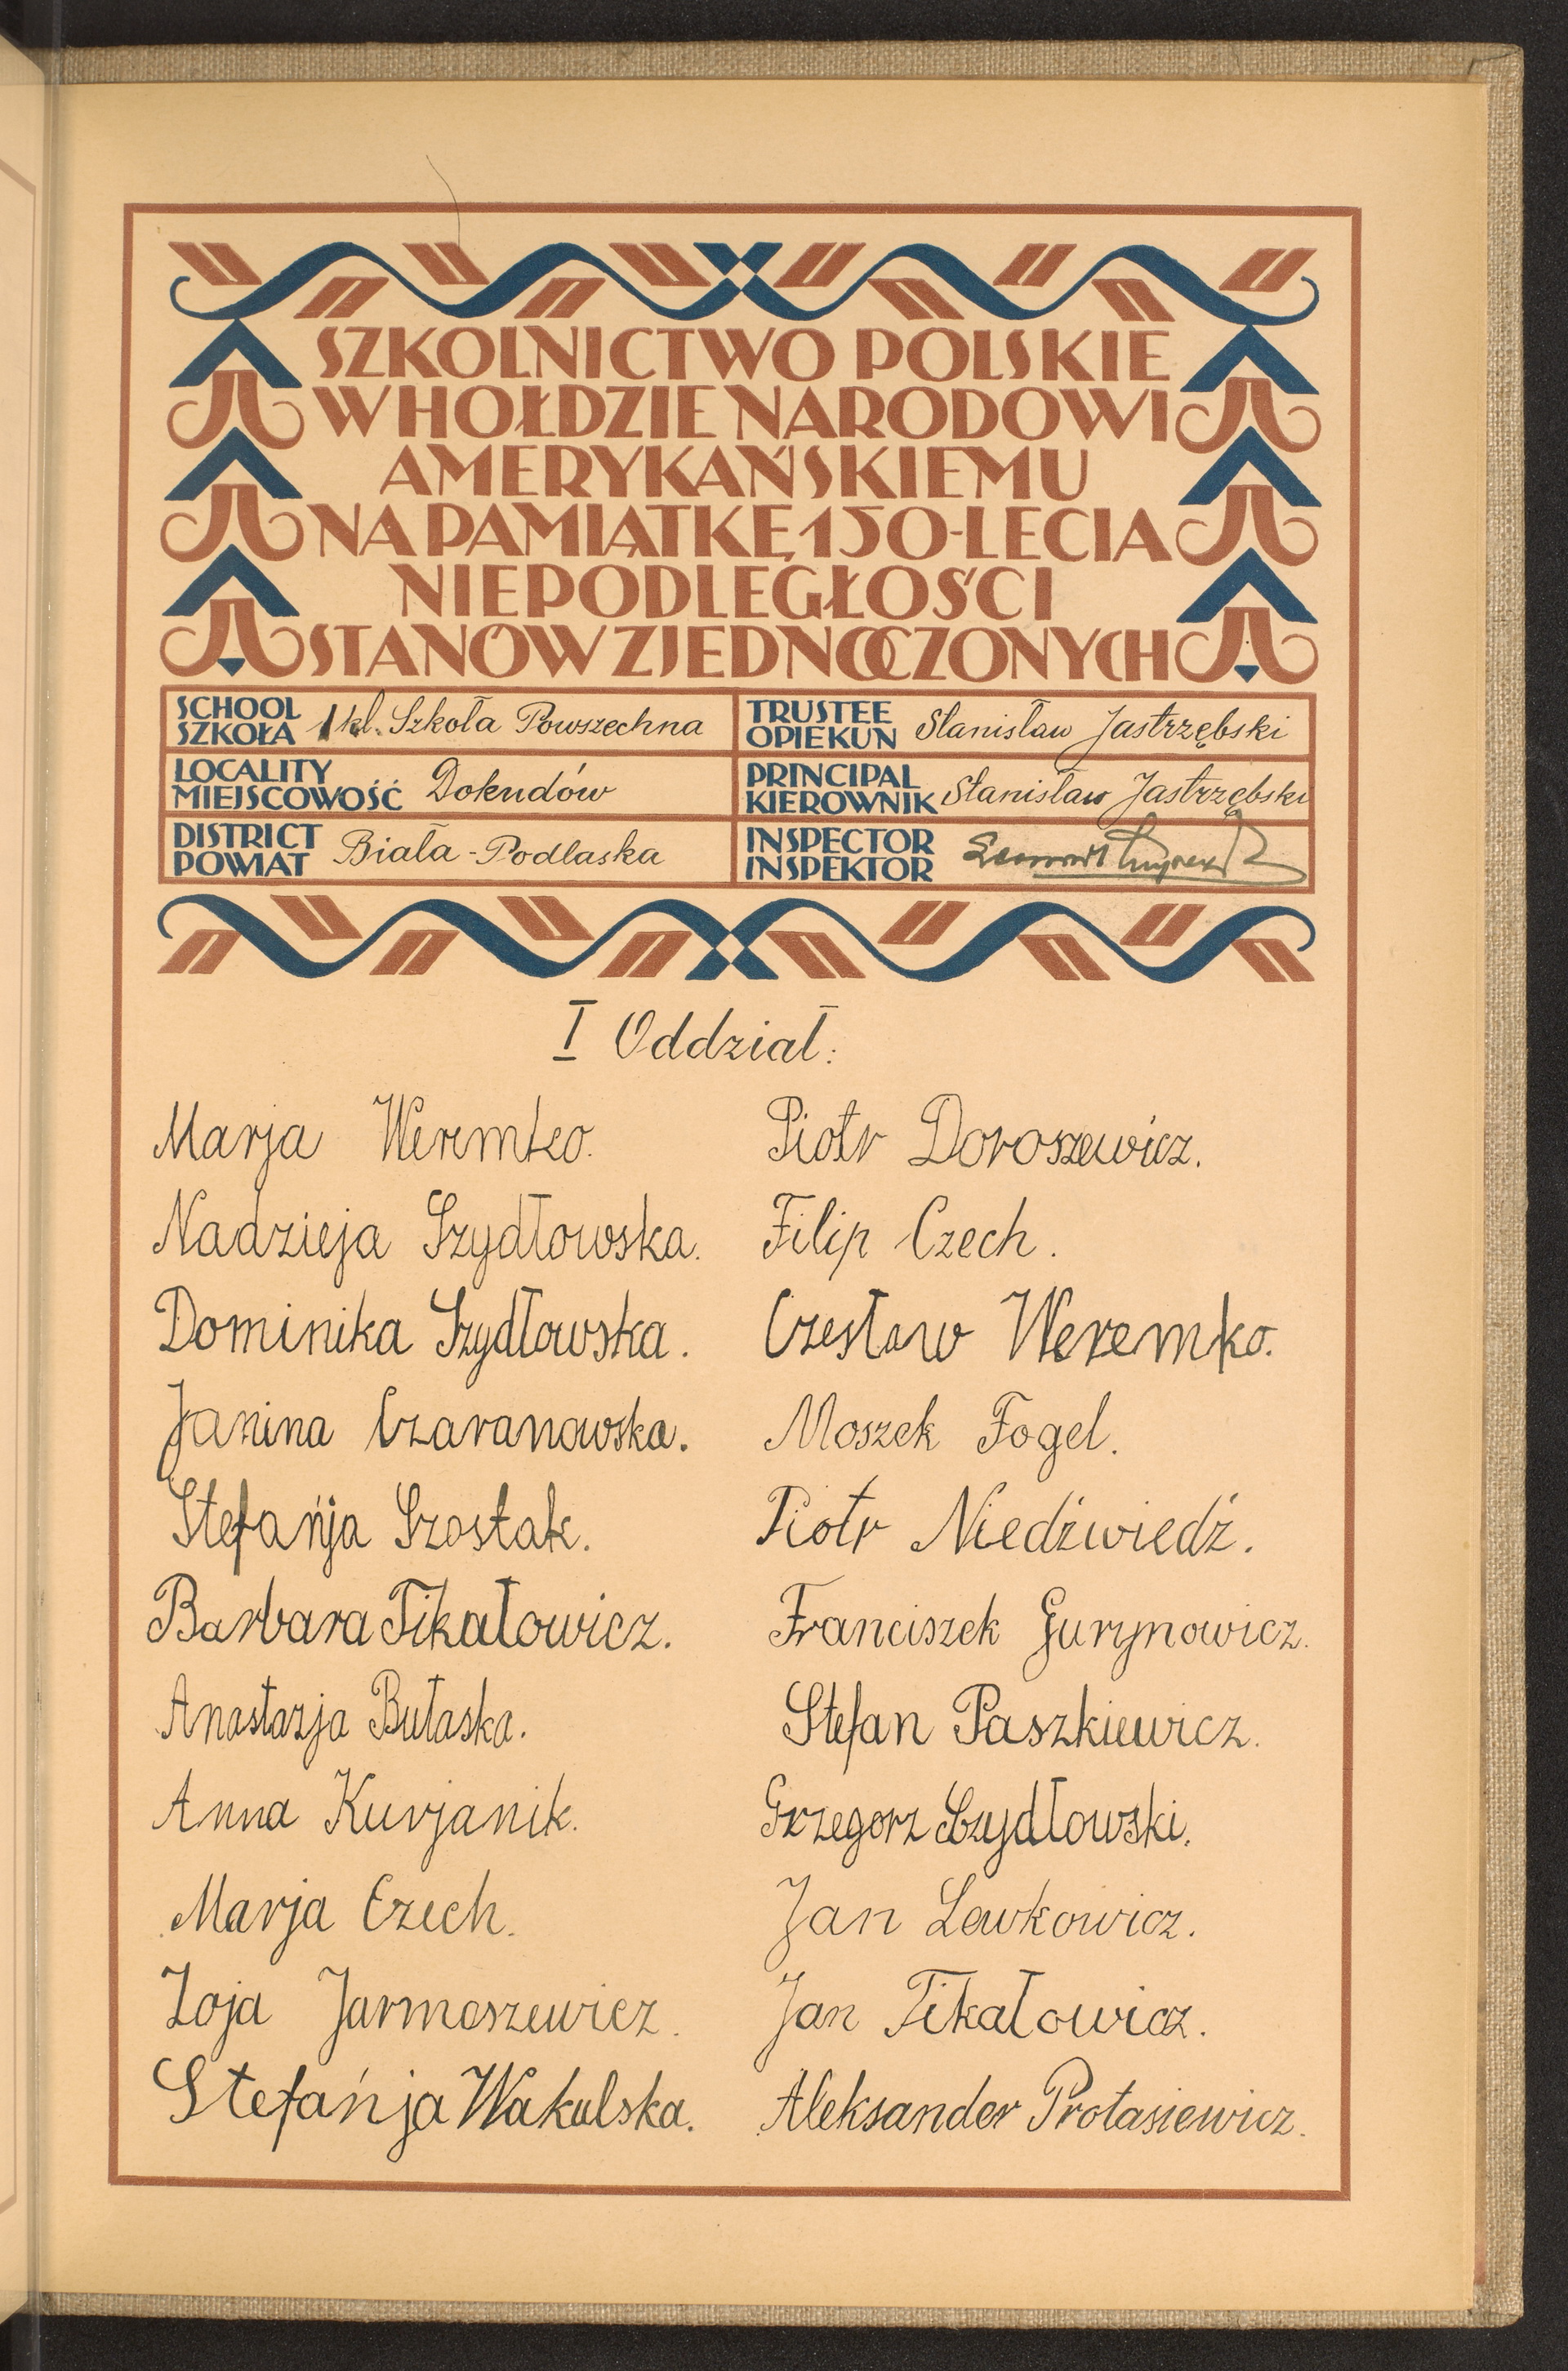 SZKOLNICTWO POLSKIE
W HOŁDZIE NARODOWI
AMERYKAŃSKIEMU
NA PAMIĄTKĘ 150-LECIA
NIEPODLEGŁOŚCI
STANÓW ZJEDNOCZONYCH
SCHOOL
SZKOŁA 1 kl. Szkoła Powszechna
TRUSTEE
OPIEKUN Stanisław Jastrzębski
LOCALITY
MIEJSCOWOŚĆ Dokudów
PRINCIPAL
KIEROWNIK Stanisław Jastrzębski
DISTRICT
POWIAT Biała-Podlaska
INSPECTOR
INSPEKTOR
I Oddział:
Marja Weremko.
Nadzieja Szydłowska.
Dominika Szydłowska.
Janina Czaranowska.
Stefańja Szostak.
Barbara Tikałowicz.
Anastazja Bułaska.
Anna Kurjanik.
Marja Czech.
Zoja Jarmoszewicz.
Stefańja Wakulska.
Piotr Doroszewicz.
Filip Czech.
Czesław Weremko.
Moszek Fogel.
Piotr Niedźwiedź.
Franciszek Gurynowicz.
Stefan Paszkiewicz.
Grzegorz Szydłowski.
Jan Lewkowicz.
Jan Tikałowicz.
Aleksander Protasiewicz.